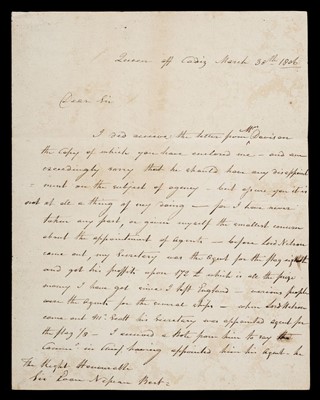 Queen off Cadiz March 30th 1806
Dear Sir
I did receive the letter from Mr Davison
the Copy of which you have enclosed me – and am
exceedingly sorry that he should have any disappoint
ment on the subject of agency – but upon
not at all a thing of my doing – for I have never
taken any part, or given myself the smallest concern
about the appointment of Agents – before Lord Nelson
came out, my Secretary was the Agent for the flag
and got his profits upon 172£ which is all the prize
money I have got since I left England – various people
were the agents for the several ships – when Lord Nelson
came out Mr Scott his Secretary was appointed agent for
the flag 1/8 – I received a Note from him to say the
Comr in Chief having appointed him his Agent – he
The Right Honourable
Sir Evan Nepean Bart.